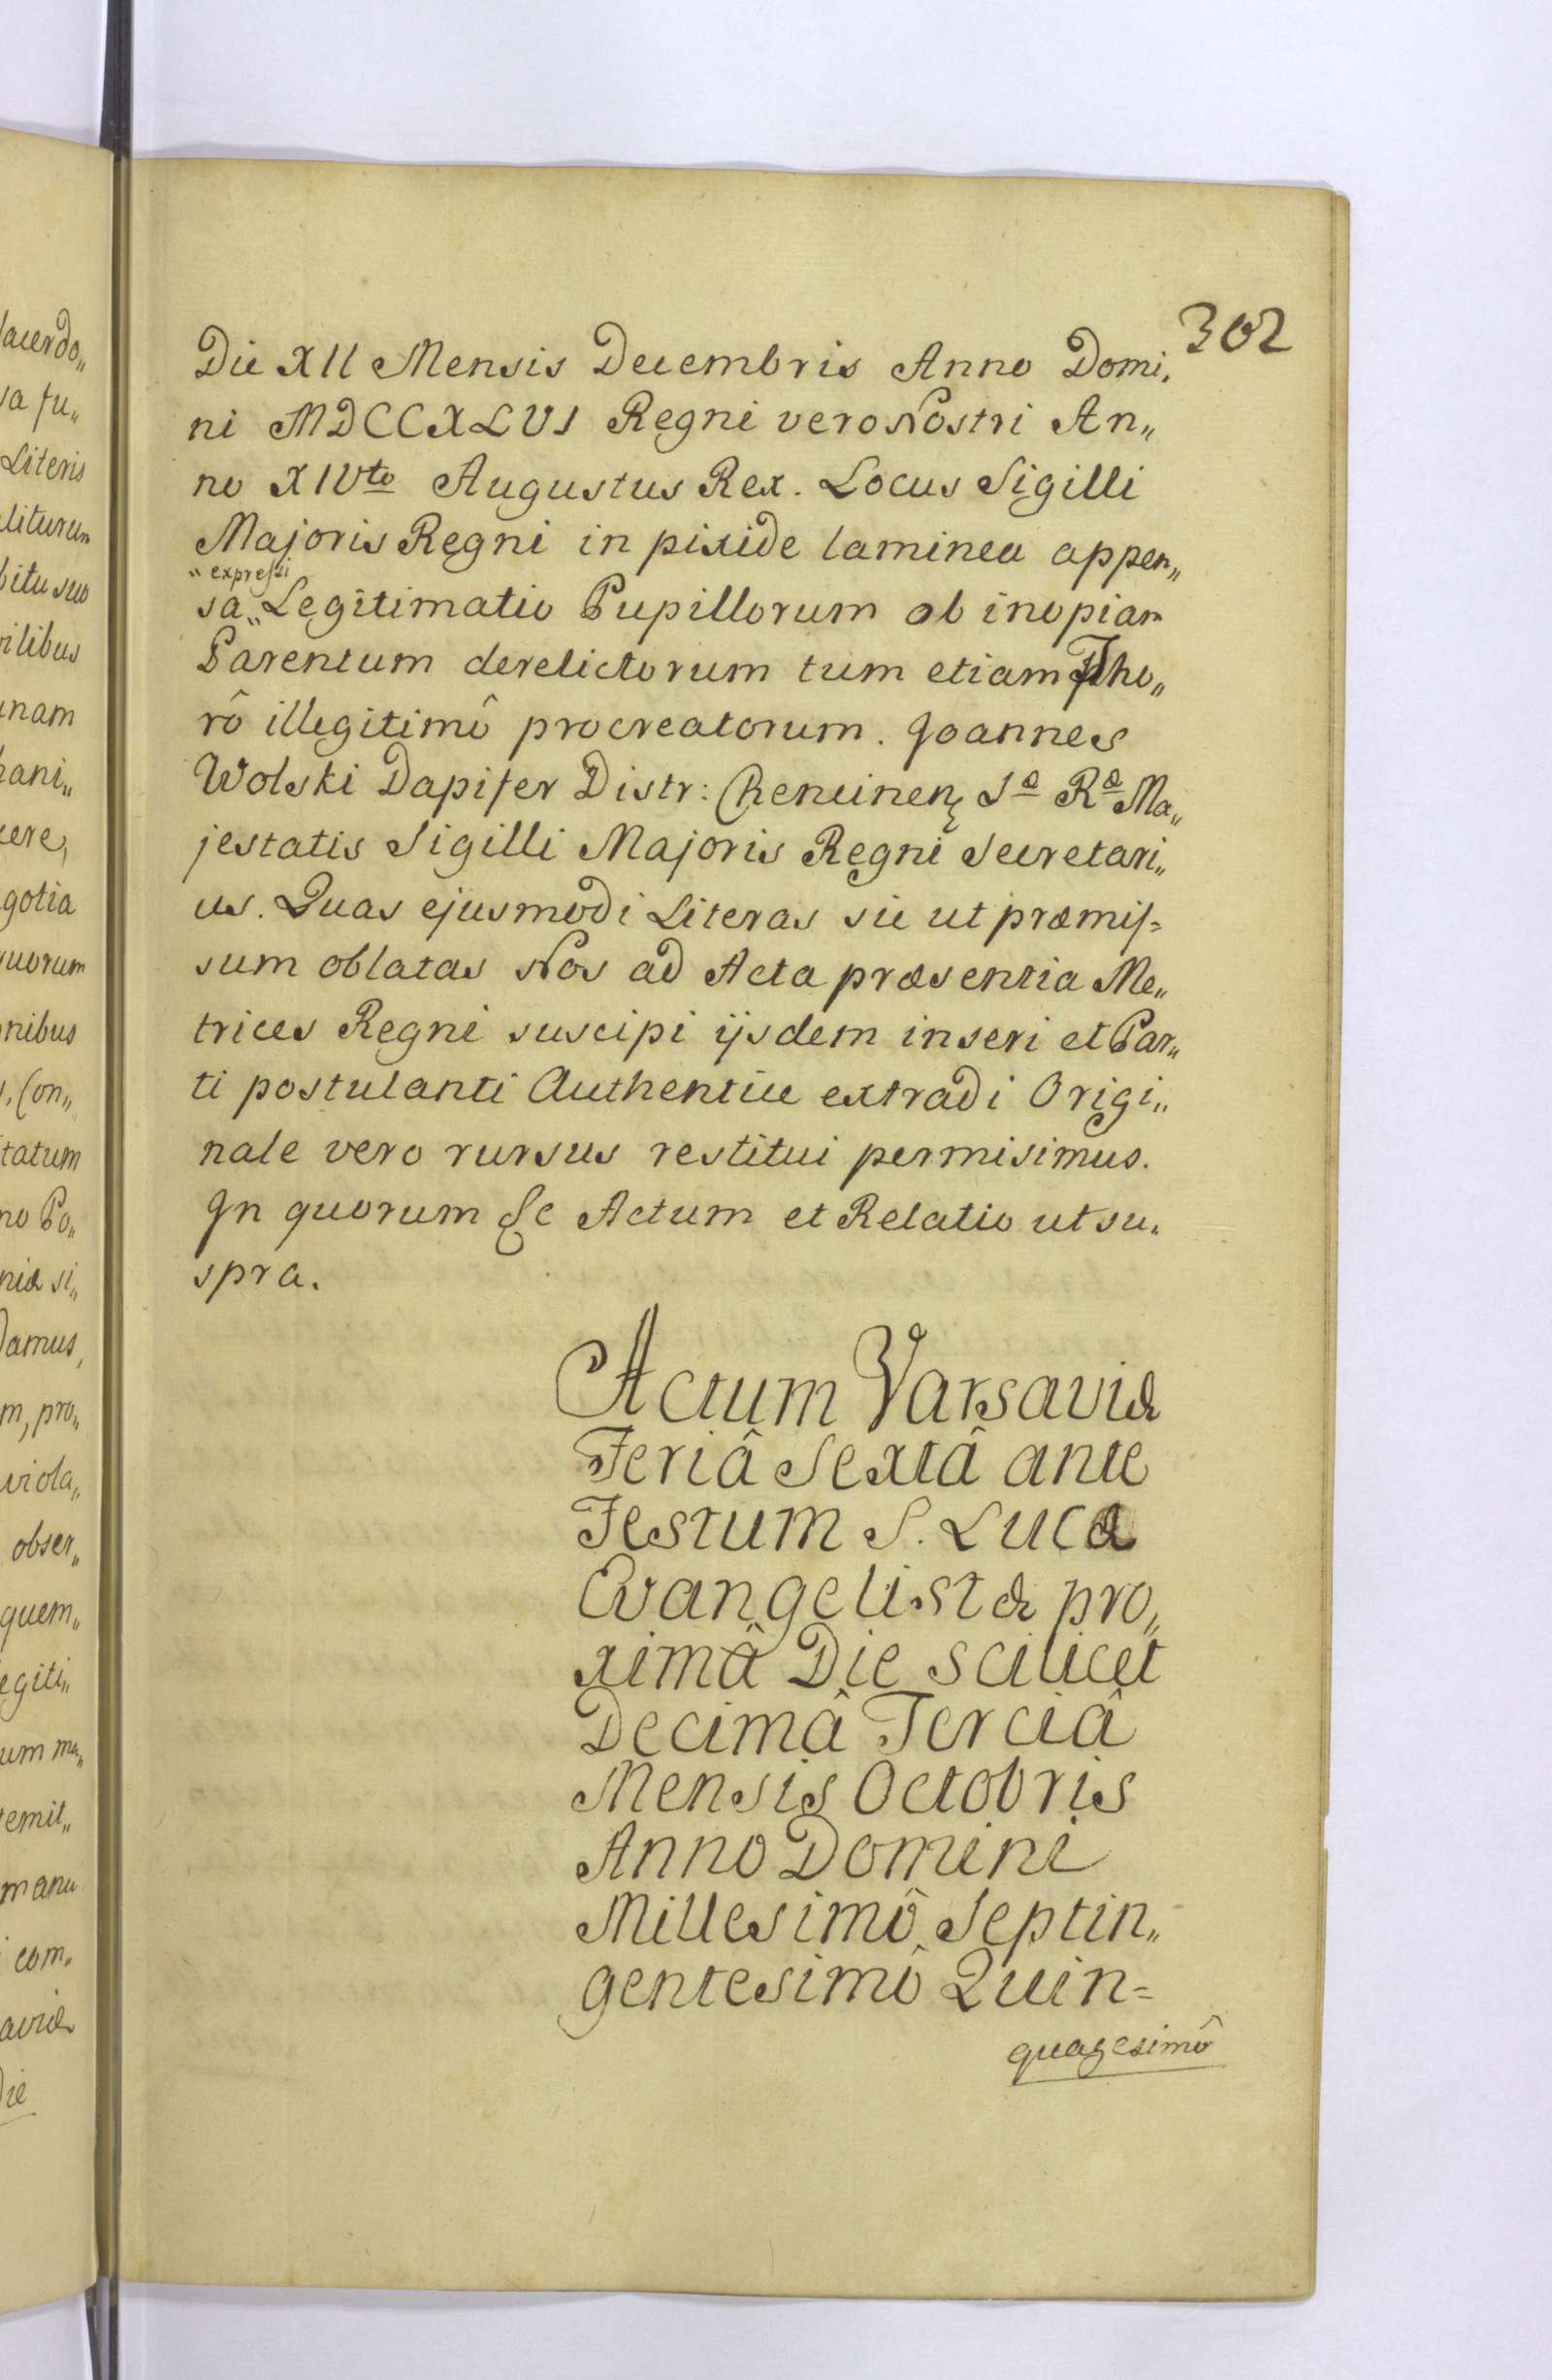 302
Die XII Mensis Decembris Anno Domi,
ni MDCCXLVI Regni vero Nostri An„
no XIVto Augustus Rex. Locus Sigilli
Majoris Regni in pixide laminea appen„
„ expressi
sa„ Legitimatio Pupillorum ob inopiam
Parentum derelictorum tum etiam Tho„
rô illegitimô procreatorum. Joannes
Wolski Dapifer Distr: Rema Ma„
jestatis Sigilli Majoris Regni Secretari„
us. Quas ejusmodi Literas sic ut præmis=
sum oblatas Nos ad Acta præsentia Me„
trices Regni suscipi ijsdem inseri et Par„
ti postulanti Authentice extradi Origi„
nale vero rursus restitui permisimus.
In quorum &c Actum et Relatio ut su„
spra.
Actum Varsaviæ
Feriâ Sextâ ante
Festum S. Lucæ
Evangelistæ pro„
ximâ Die scilicet
Decimâ Terciâ
Mensis Octobris
Anno Domini
Millesimô Septin„
gentesimô Quin=
quagesimô
acerdo„
a fu„
Literis
liturum
bitu suo
ilibus
nam
ani„
cere,
gotia
uorum
nibus
s, Con„
tatum
no Po„
niæ si„
Damus,
m, pro„
viola„
obser„
quem„
egiti„
um ma„
emit„
manu
com„
aviæ
Die